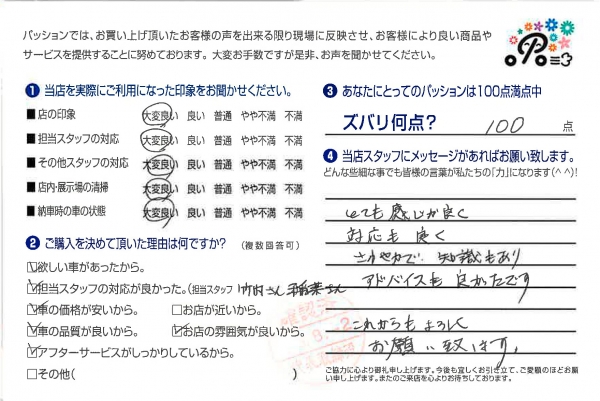 パッションでは、お買い上げ頂いたお客様の声を出来る限り現場に反映させ、お客様により良い商品や
サービスを提供することに努めております。大変お手数ですが是非、お声を聞かせてください。
❶ 当店を実際にご利用になった印象をお聞かせください。
■店の印象 大変良い 良い 普通 やや不満 不満
■担当スタッフの対応 大変良い 良い 普通 やや不満 不満
■その他スタッフの対応 大変良い 良い 普通 やや不満 不満
■店内・展示場の清掃 大変良い 良い 普通 やや不満 不満
■納車時の車の状態 大変良い 良い 普通 やや不満 不満
❷ ご購入を決めて頂いた理由は何ですか? (複数回答可)
☑欲しい車があったから。
☑担当スタッフの対応が良かった。(担当スタッフ 竹内さん 稲葉さん
☑車の価格が安いから。 □お店が近いから。
☑車の品質が良いから。 ☑お店の雰囲気が良いから。
☑アフターサービスがしっかりしているから。
□その他( )
❸ あなたにとってのパッションは100点満点中
ズバリ何点? 100 点
❹ 当店スタッフにメッセージがあればお願い致します。
どんな些細な事でも皆様の言葉が私たちの「力」になります(^^)!
とても感じが良く
対応も良く
さわやかで 知識もあり
アドバイスも良かったです
これからもよろしく
お願い致します。
ご協力に心より御礼申し上げます。今後も宜しくお引き立て、ご愛顧のほどお願
い申し上げます。またのご来店を心よりお待ちしております。